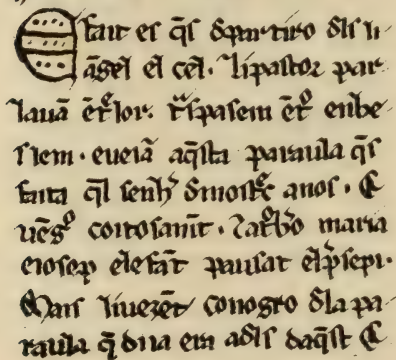 E fait es q̃s dpartiro dls li
ãgel el cel. li pastor par
lauã ẽtᵉlor. tᵃspasem ẽtᵒ enbe
tlem. eueiã aq̃sta paraula q̃s
faita q̃l senhʳ dmostᵉc anos. E
uẽgᵒ coitosamt̃. ⁊atᵒbᵒo maria
eiosep elefãt pausat elp̃sepi.
Mas liuezẽt conogro dla pa
raula q̃ dita era adls daq̃st e